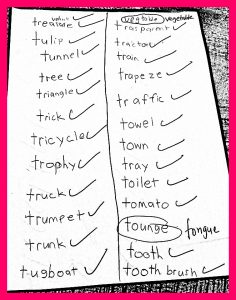 treadade
tulip
tunnel
tree
triangle
trick
tricycle
trophy
truck
trumpet
trunk
tugboat
vegtable vegetable
tractor
train
trapeze
traffic
towel
town
tray
toilet
tomato
tounge tongue
tooth
tooth brush